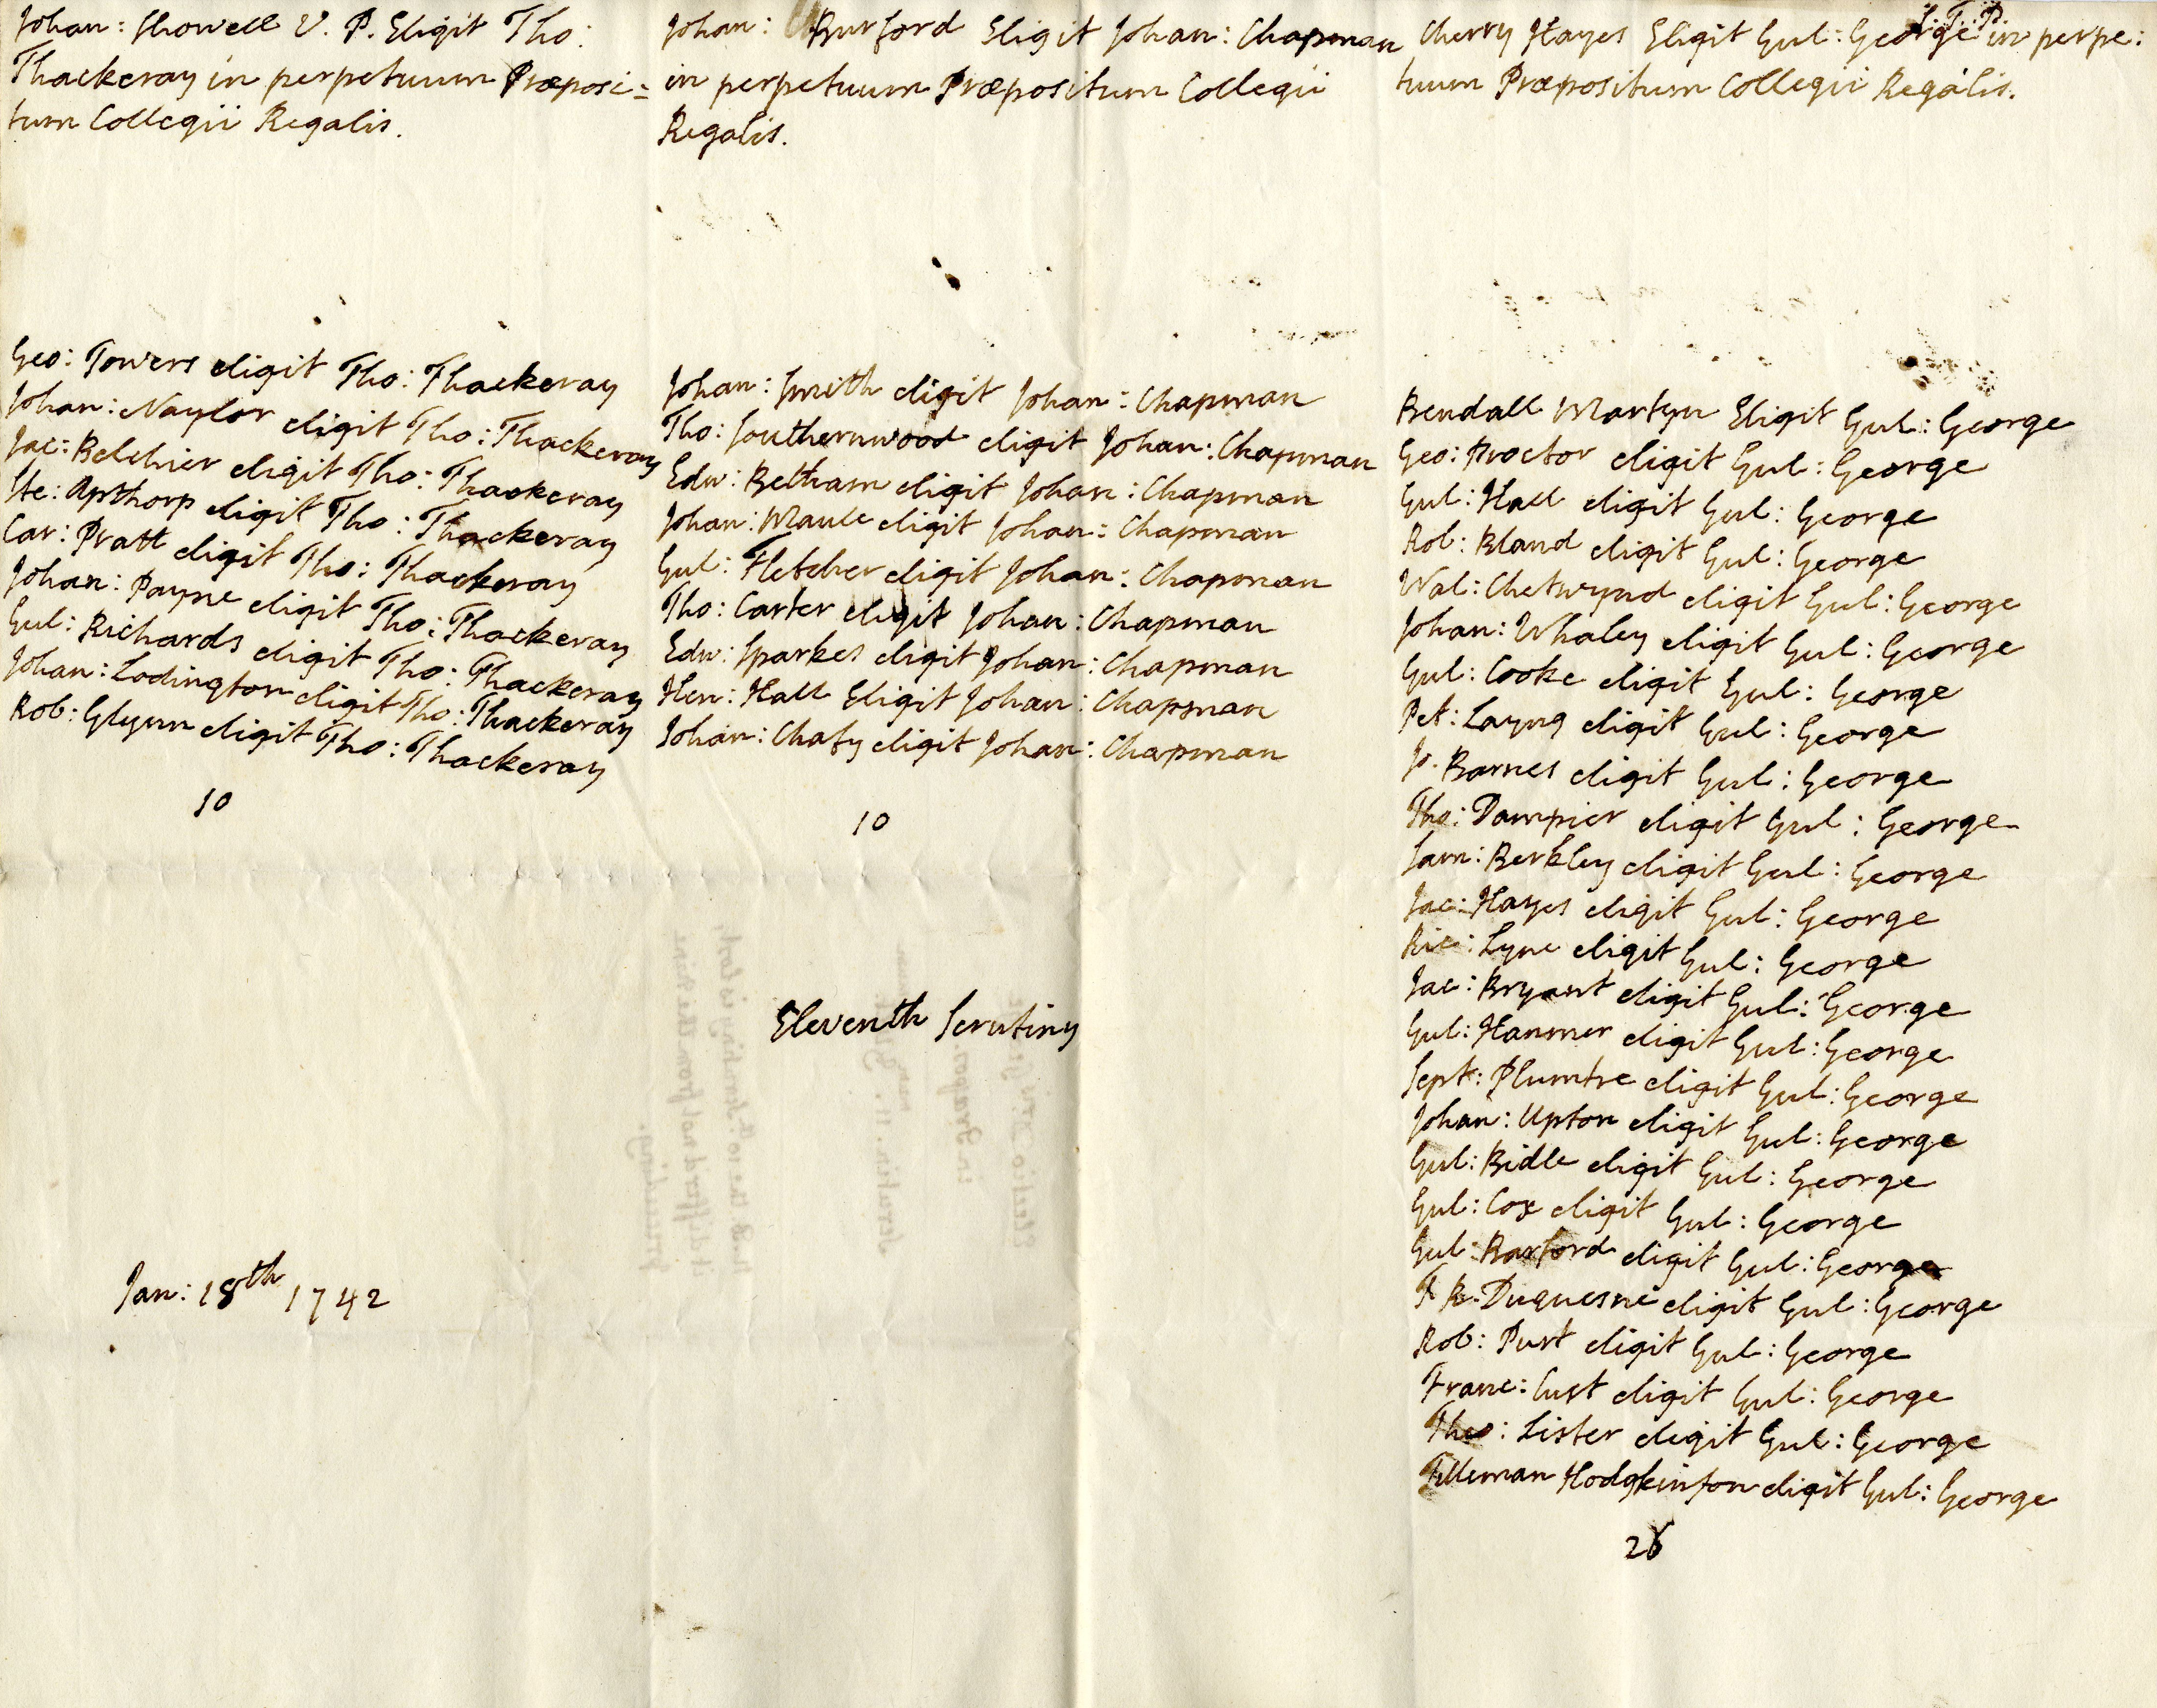 Johan: Showell V. P. Eligit Tho:
Thackeray in perpetuum Præposi=
tum Collegii Regalis.
Geo: Towers eligit Tho: Thackeray
Johan: Naylor eligit Tho: Thackeray
Jac: Belchier eligit Tho: Thackeray
Ste: Apthorp eligit Tho: Thackeray
Car: Pratt eligit Tho: Thackeray
Johan: Payne eligit Tho: Thackeray
Gul: Richards eligit Tho: Thackeray
Johan: Lodington eligit Tho: Thackeray
Rob: Glynn eligit Tho: Thackeray
10
Johan: Burford Eligit Johan: Chapman
in perpetuum Præpositum Collegii
Regalis.
Johan: Smith eligit Johan: Chapman
Tho: Southernwood eligit Johan: Chapman
Edw: Betham eligit Johan: Chapman
Johan: Maule eligit Johan: Chapman
Gul: Fletcher eligit Johan: Chapman
Tho: Carter eligit Johan: Chapman
Edw: Sparkes eligit Johan: Chapman
Hen: Hall Eligit Johan: Chapman
Johan: Chafy eligit Johan: Chapman
10
Cherry Hayes Eligit Gul: George S.T.P. in perpe:
tuum Præpositum Collegii Regalis.
Bendall Martyn Eligit Gul: George
Geo: Proctor eligit Gul: George
Gul: Hall eligit Gul: George
Rob: Bland eligit Gul: George
Wal: Chetwynd eligit Gul: George
Johan: Whaley eligit Gul: George
Gul: Cooke eligit Gul: George
Pet: Layng eligit Gul: George
Jo. Barnes eligit Gul: George
Tho: Dampier eligit Gul: George
Sam: Berkley eligit Gul: George
Jac: Hayes eligit Gul: George
Ric: Lyne eligit Gul: George
Jac: Bryant eligit Gul: George
Gul: Hanmer eligit Gul: George
Sept: Plumtre eligit Gul: George
Johan: Upton eligit Gul: George
Gul: Bidle eligit Gul: George
Gul: Cox eligit Gul: George
Gul: Barford eligit Gul: George
T R: Duquesne eligit Gul: George
Rob: Purt eligit Gul: George
Franc: Cust eligit Gul: George
Tho: Lister eligit Gul: George
Tilleman Hodgkinson eligit Gul: George
26
Eleventh Scrutiny
Jan: 18th 1742